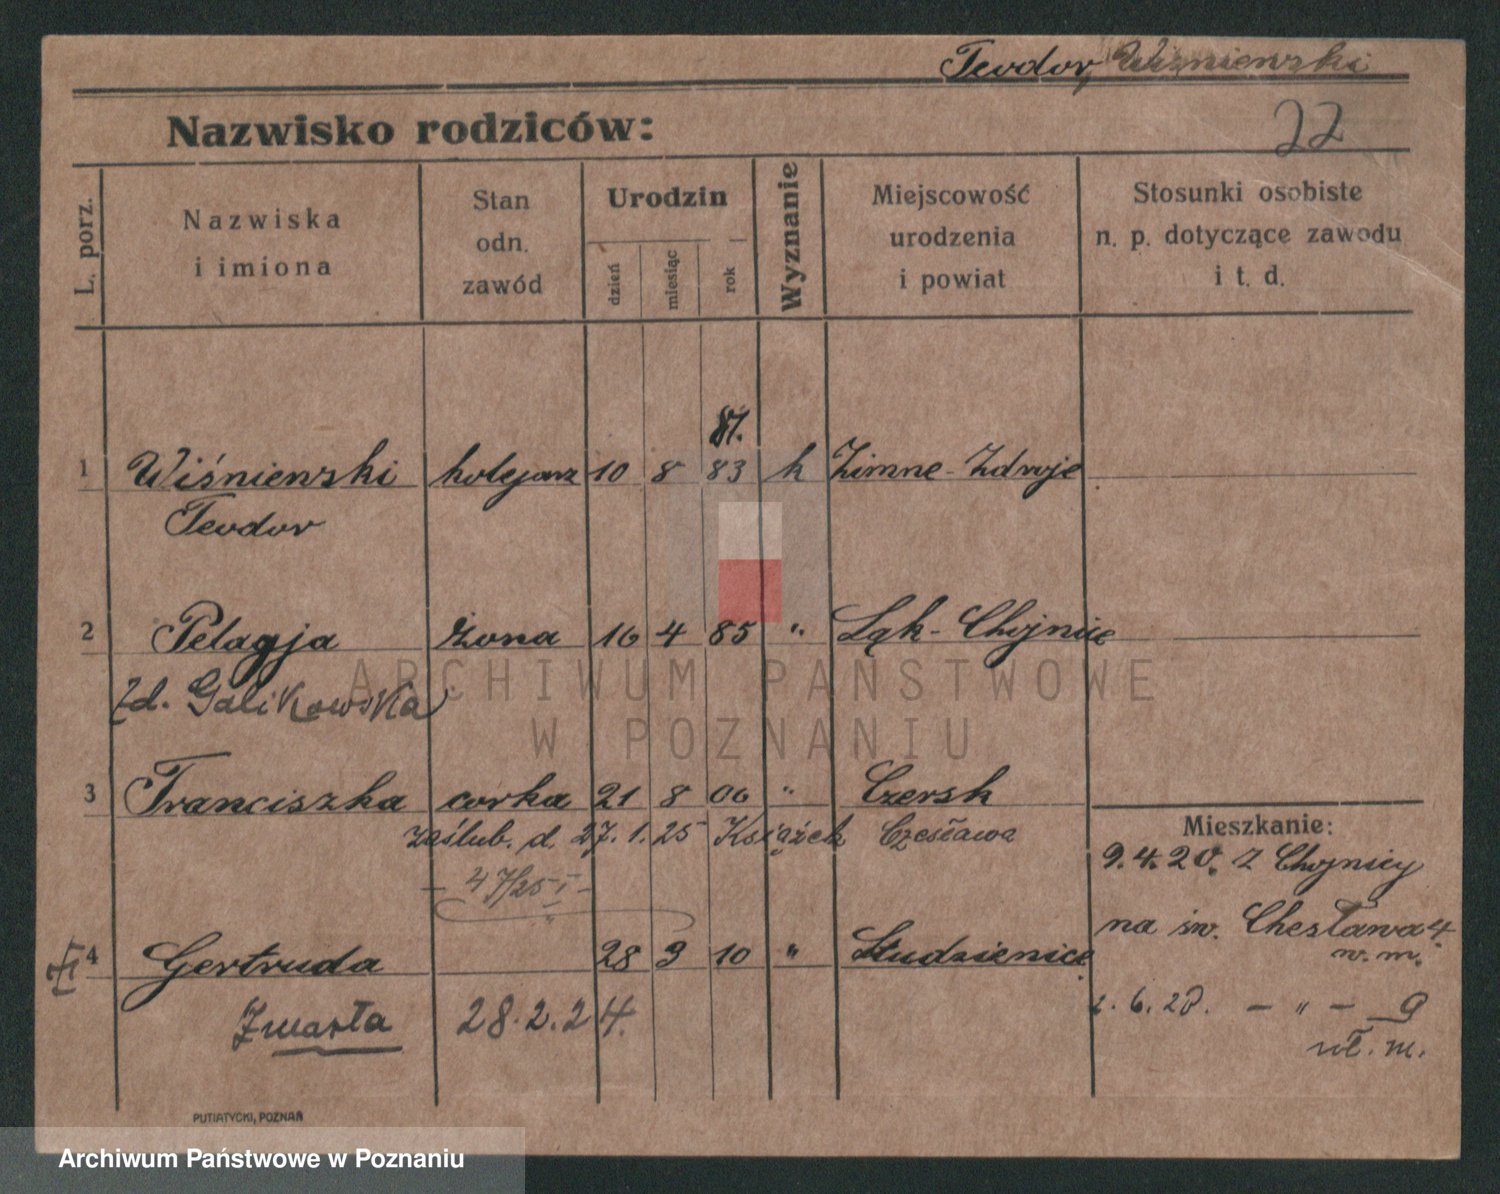 Teodor Wiśniewski
22
Nazwisko rodziców:
L. porz.
Nazwiska
i imiona
Stan
odn.
zawód
Urodzin
dzień
miesiąc
rok
Wyznanie
Miejscowość
urodzenia
i powiat
Stosunki osobiste
n. p. dotyczące zawodu
i t. d.
81.
1 Wiśniewski kolejarz 10 8 83 k Zimne-Zdroje
Teodor
2 Pelagja żona 16 4 85 " Łąk-Chojnice
Zd. Galikowska
3 Franciszka corka 21 8 06 " Czersk
zaślub. d. 27.1.25 Książek Czesława
- 47/25 I -
Mieszkanie:
9.4.20. z Chojnicy
na św. Chesława 4.
w. m.
4 Gertruda 28 9 10 " Studzienice
Zmarła 28.2.24.
6.20. - " - 9
wł. m.
PUTIATYCKI, POZNAŃ
ARCHIWUM PAŃSTWOWE
W POZNANIU
Archiwum Państwowe w Poznaniu